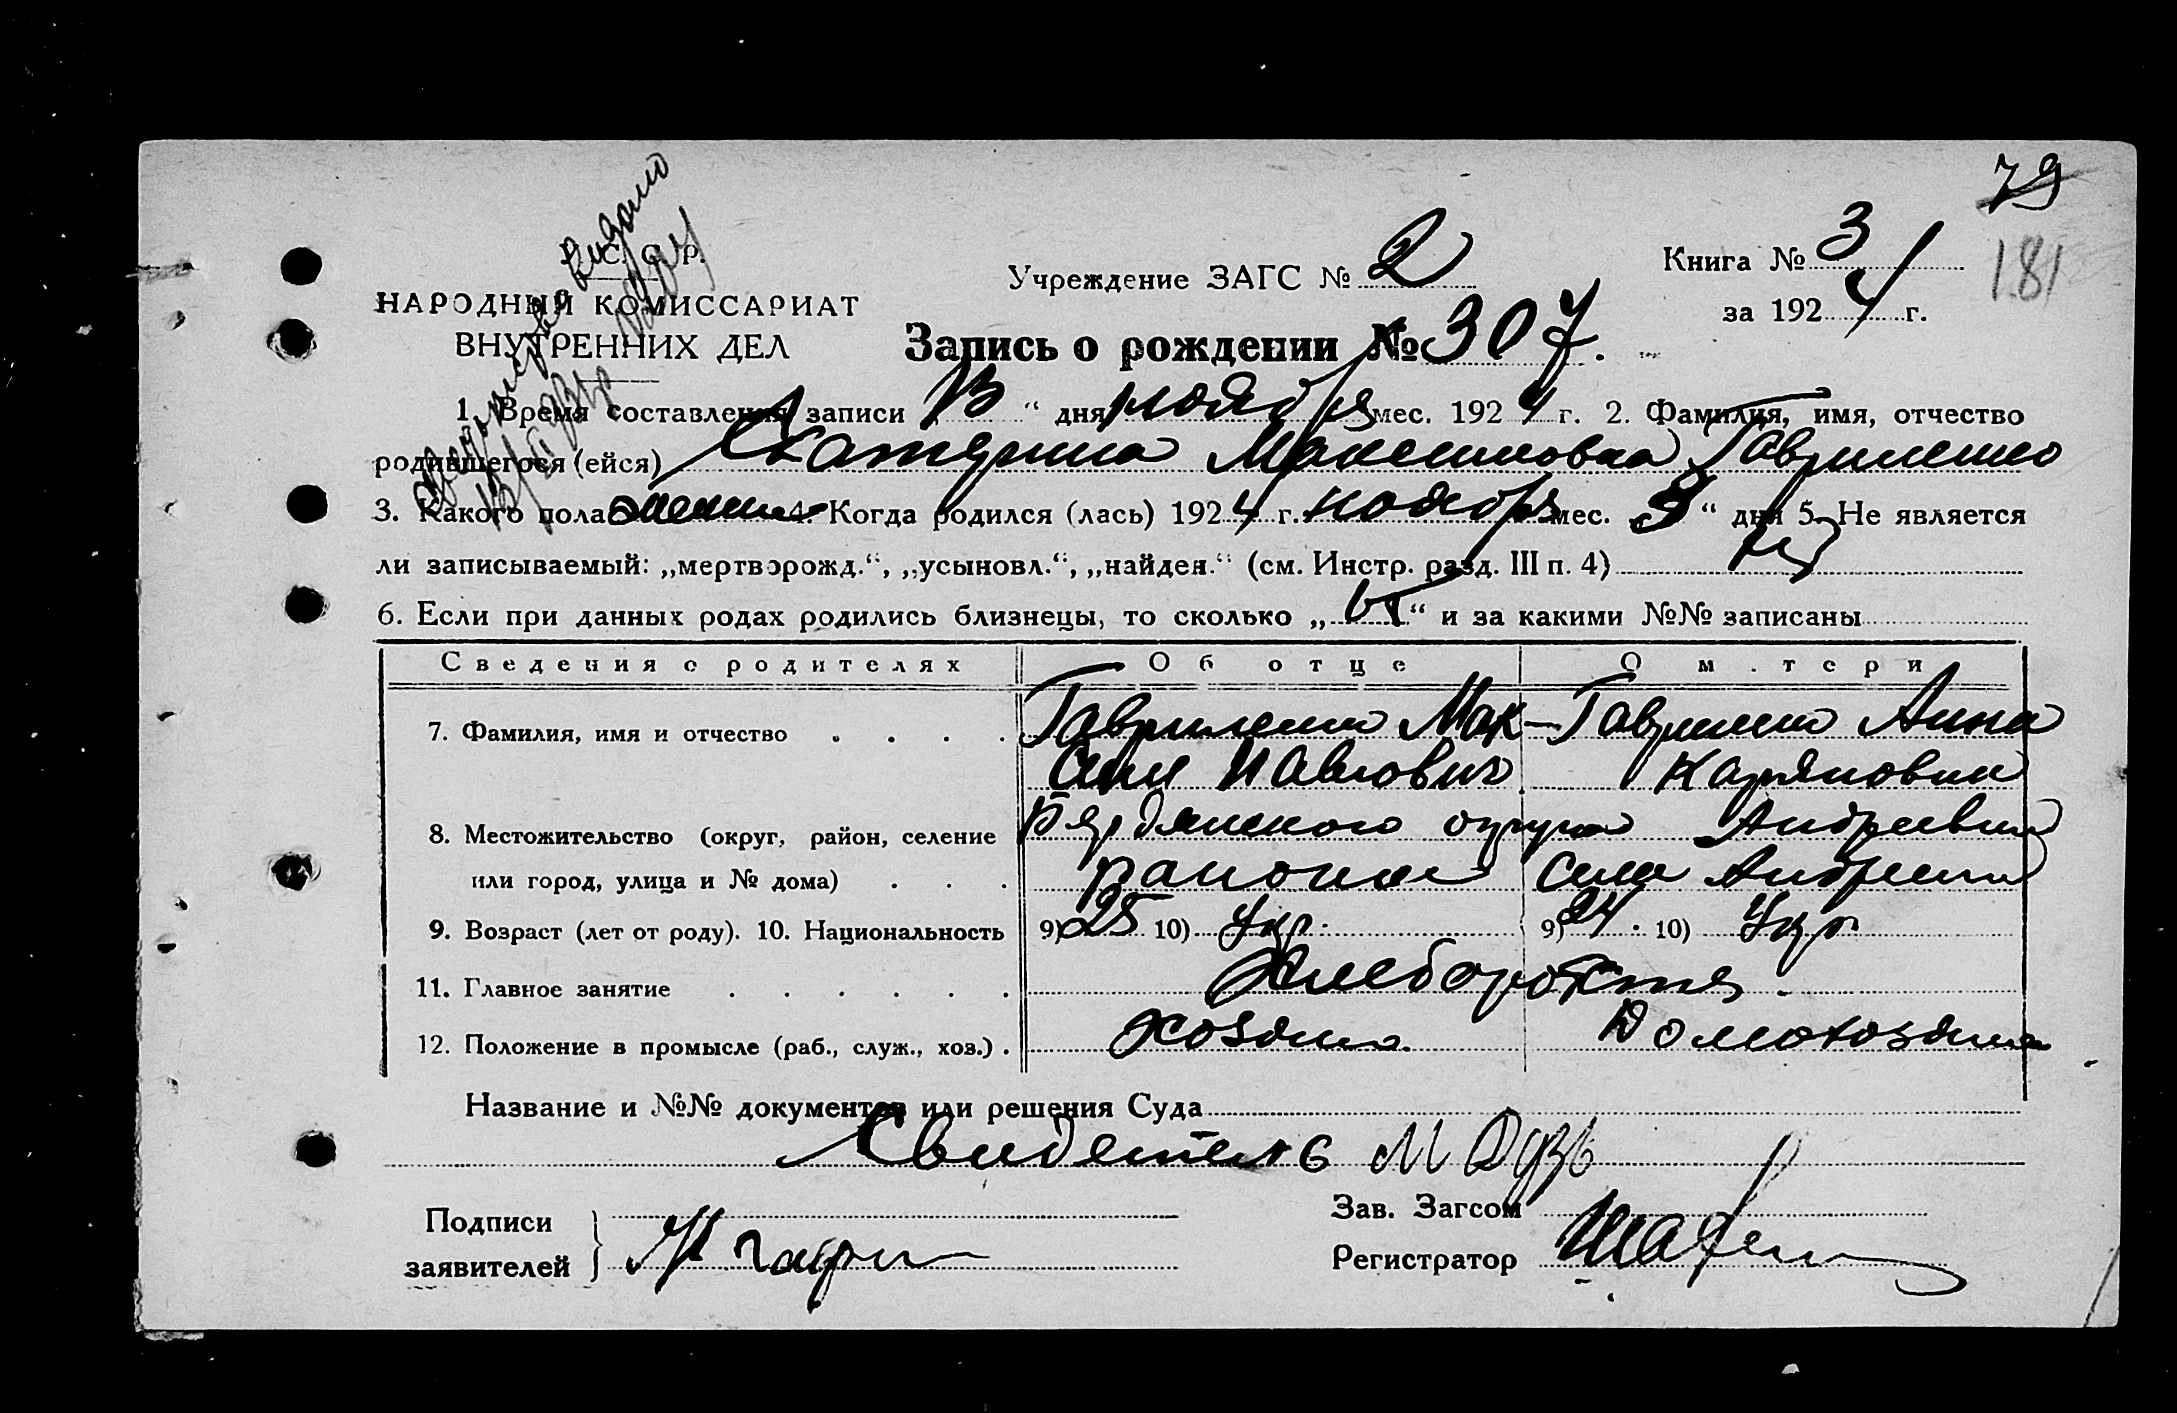 79
181
У. С. С. Р.
НАРОДНЫЙ КОМИССАРИАТ
ВНУТРЕННИХ ДЕЛ
Учреждение ЗАГС № 2
Книга № 3
за 1924 г.
Запись о рождении № 307.
1. Время составления записи „13“ дня ноября мес. 1924 г. 2. Фамилия, имя, отчество
родившегося (ейся) Екатерина Максимовна Гавриленко
3. Какого пола женск 4. Когда родился (лась) 1924 г. ноября мес. „9“ дня 5. Не является
ли записываемый: „мертворожд.“, „усыновл.“, „найден.“ (см. Инстр. разд. III п. 4) нет
6. Если при данных родах родились близнецы, то сколько „ “ и за какими №№ записаны
Сведения о родителях Об отце О матери
7. Фамилия, имя и отчество Гавриленко Мак- Гавриленко Анна
сим Павлович
8. Местожительство (округ, район, селение Бердянского округа Андреевск
или город, улица и № дома) района село Андреевка
9. Возраст (лет от роду). 10. Национальность 9) 25 10) Укр. 9) 24 10) Укр
11. Главное занятие Хлеборобство
12. Положение в промысле (раб., служ., хоз.) хозяин Домохозяйка
Название и №№ документов или решения Суда
Свидетель М Дузь
Подписи
заявителей
Зав. Загсом
Регистратор